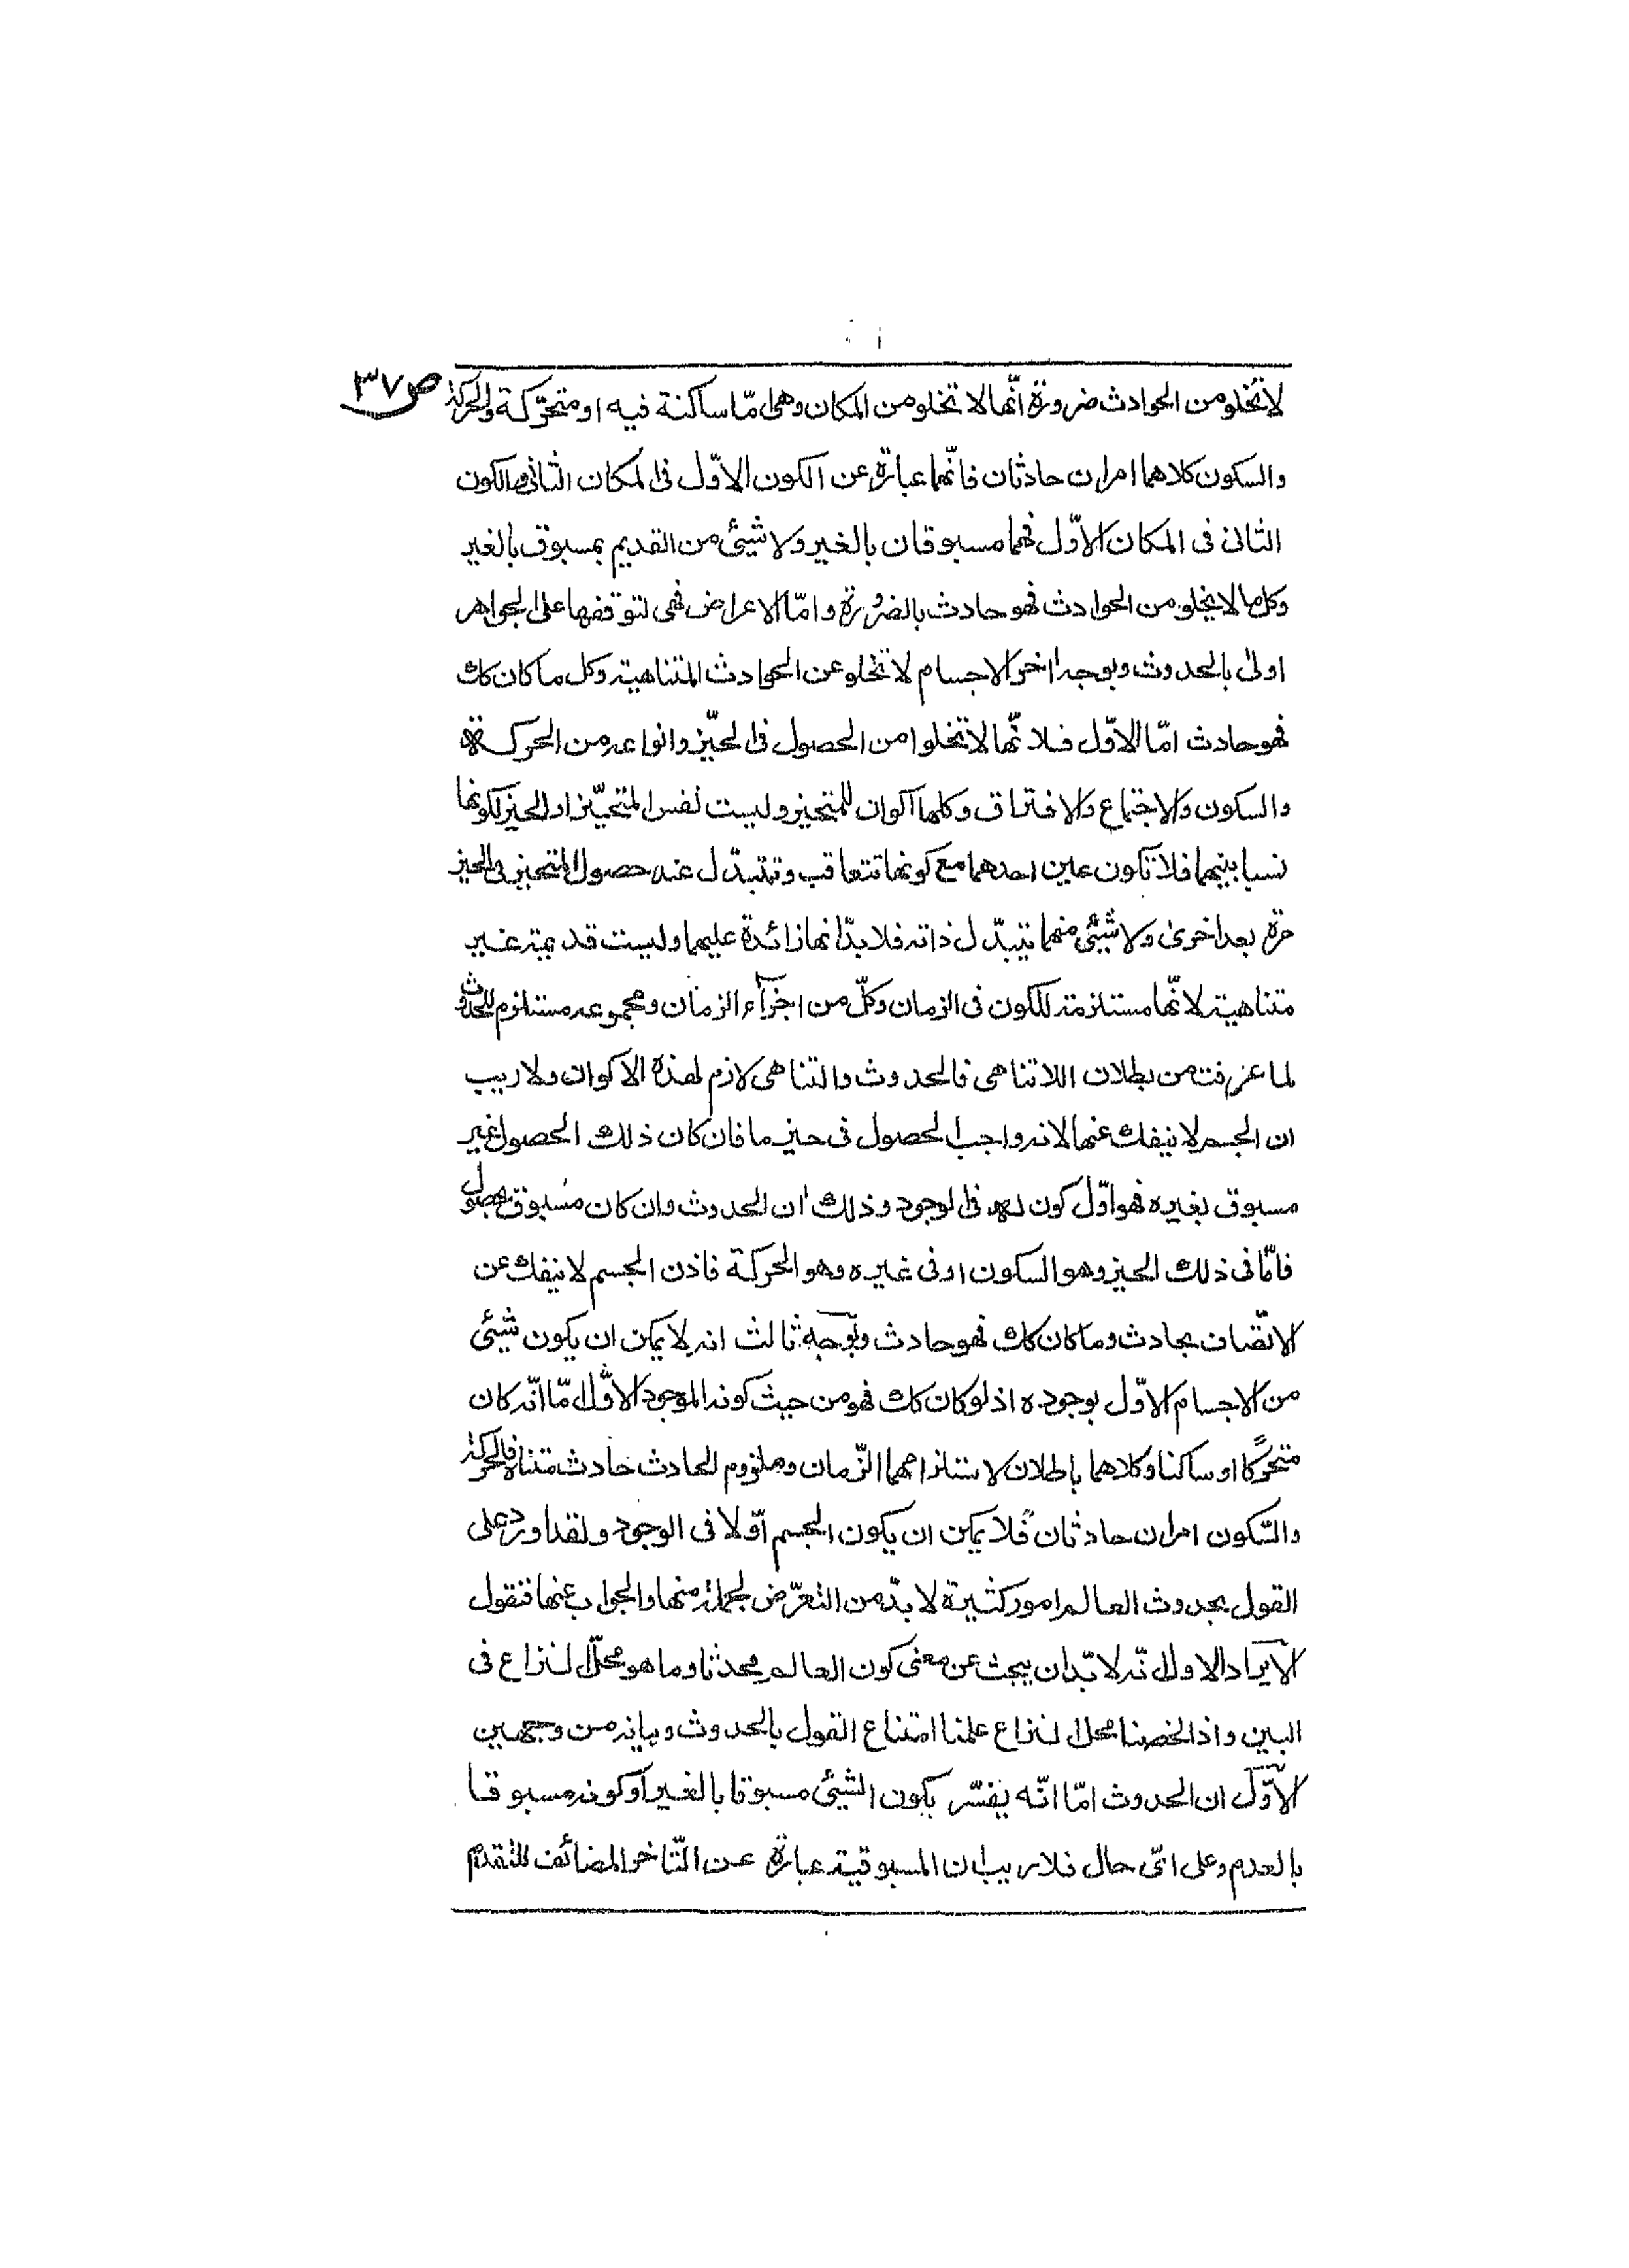 ص ٣٧
لا تخلو من الحوادث ضرورة انّها لا تخلو من المكان وهى امّا ساكنة فيه او متحرّكة والحركة
والسكون كلاهما امران حادثان فانّهما عبارة عن الكون الاوّل فى المكان الثانى والكون
الثانى فى المكان الاوّل فهما مسبوقان بالغير ولا شيئى من القديم بمسبوق بالغير
وكل ما لا يخلو من الحوادث فهو حادث بالضرورة وامّا الاعراض فهى لتوقفها على الجواهر
اولى بالحدوث وبوجه اخر الاجسام لا تخلو عن الحوادث المتناهية وكل ما كان كك
فهو حادث امّا الاوّل فلانّها لا تخلوا من الحصول فى الحيّز وانواعه من الحركة
والسكون والاجتماع والافتراق وكلها اكوان للمتحيز وليست نفس المتحيّز او الحيز لكونها
نسبا بينهما فلا تكون عين احدهما مع كونها تتعاقب وتتبدّل عند حصول المتحيز فى الحيز
مرة بعد اخرى ولا شيئى منهما يتبدّل ذاته فلا بدّ انها زائدة عليهما وليست قديمة غير
متناهية لانّها مستلزمة للكون فى الزمان وكلّ من اجزآء الزمان ومجموعه مستلزم للحدوث
لما عرفت من بطلان اللاتناهى فالحدوث والتناهى لازم لهذه الاكوان ولا ريب
ان الجسم لا ينفك عنها لانه واجب الحصول فى حيز ما فان كان ذلك الحصول غير
مسبوق بغيره فهو اوّل كون له فى الوجود وذلك ان الحدوث وان كان مسبوق بحصول
فامّا فى ذلك الحيز وهو السكون او فى غيره وهو الحركة فاذن الجسم لا ينفك عن
الاتّصاف بحادث وما كان كك فهو حادث وبوجه ثالث انه لا يمكن ان يكون شيئى
من الاجسام الاوّل بوجوده اذ لو كان كك فهو من حيث كونه الموجود الاوّل امّا انّه كان
متحركًا او ساكنا وكلاهما باطلان لاستلزامهما الزّمان وملزوم الحادث حادث متناه فالحركة
والسّكون امران حادثان فلا يمكن ان يكون الجسم اوّلا فى الوجود ولقد اورد على
القول بحدوث العالم امور كثيرة لا بدّ من التعرّض لجملة منها والجواب عنها فنقول
الايراد الاول انّه لا بدّ ان يبحث عن معنى كون العالم محدثا وما هو محلّ النزاع فى
البين واذا لخصنا محل النزاع علمنا امتناع القول بالحدوث وبيانه من وجهين
الاوّل ان الحدوث امّا انّه يفسّر بكون الشيئى مسبوقا بالغير او كونه مسبوقا
بالعدم وعلى اىّ حال فلا ريب ان المسبوقية عبارة عن التّاخر المضائف للتقدم